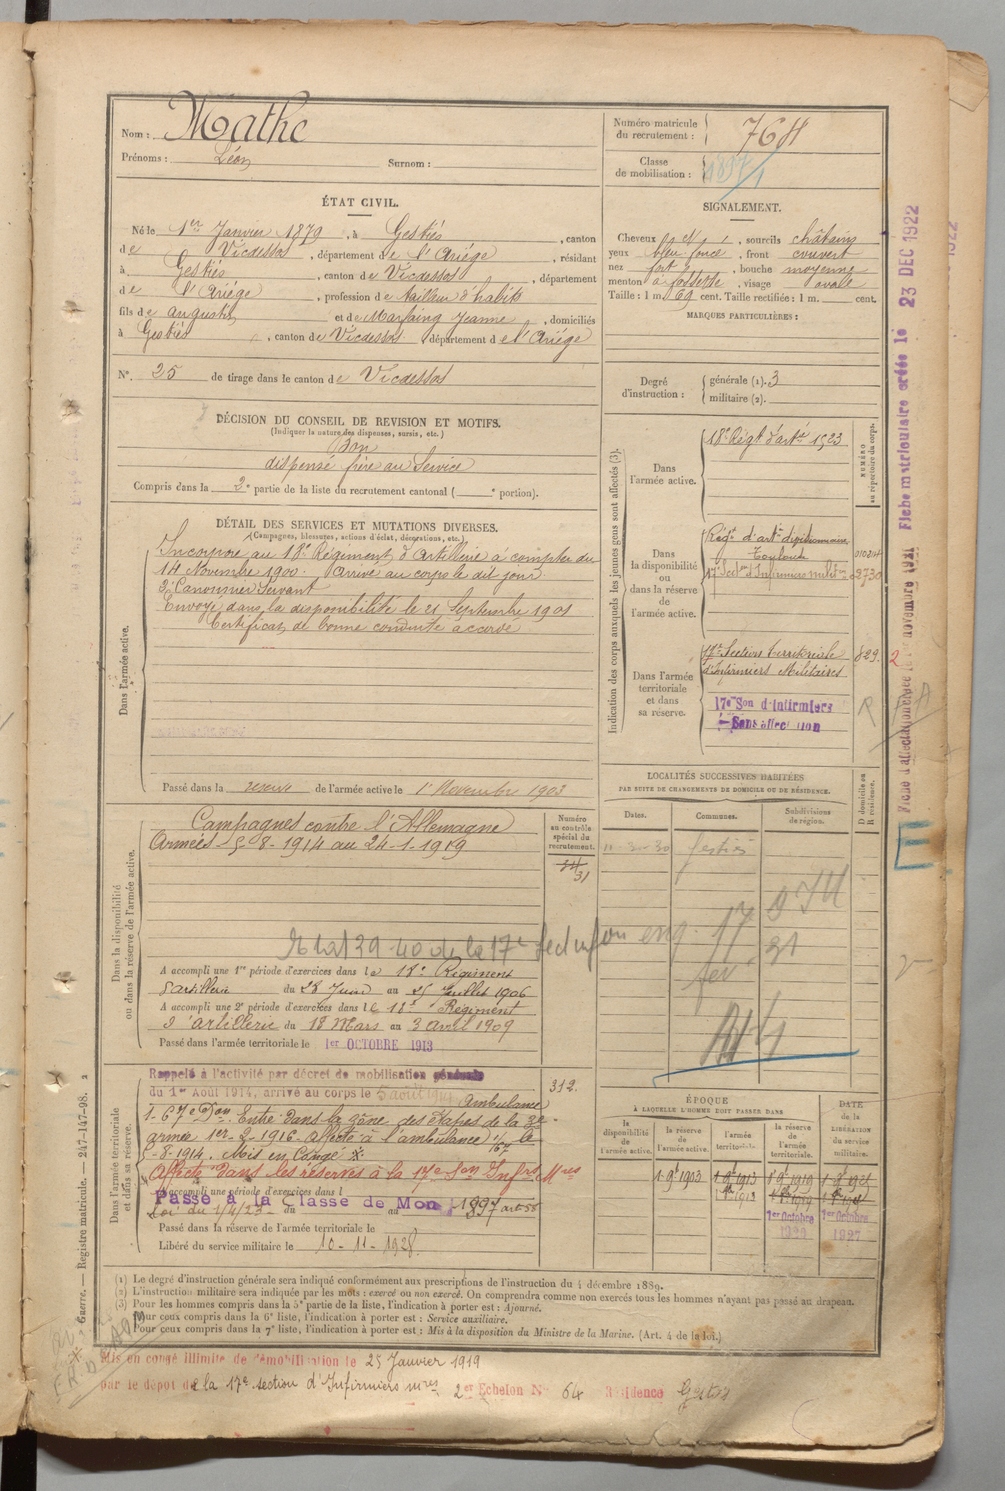 Nom : Mathe
Prénoms : Léon Surnom :
Numéro matricule
du recrutement : 764
Classe
de mobilisation : 1897
ÉTAT CIVIL.
Né le 1er Janvier 1879, à Gestiés, canton
de Vicdessos, département de l'Ariége, résidant
à Gestiés, canton de Vicdessos, département
de l'Ariége, profession de tailleur d'habits
fils de Augustin et de Marfaing Jeanne, domiciliés
à Gestiés, canton de Vicdessos, département de l'Ariége
N° 25 de tirage dans le canton de Vicdessos
SIGNALEMENT.
Cheveux, sourcils châtains
yeux bleu foncé, front couvert
nez fort, bouche moyenne
menton à fossette, visage ovale
Taille : 1 m. 69 cent. Taille rectifiée : 1 m. cent.
MARQUES PARTICULIÈRES :
Degré
d'instruction :
générale (1). 3
militaire (2).
DÉCISION DU CONSEIL DE REVISION ET MOTIFS.
(Indiquer la nature des dispenses, sursis, etc.)
Bon
dispensé frère au Service
Compris dans la 2e partie de la liste du recrutement cantonal ( e portion).
DÉTAIL DES SERVICES ET MUTATIONS DIVERSES.
(Campagnes, blessures, actions d'éclat, décorations, etc.)
Dans l'armée active.
Incorporé au 18e Régiment d'Artillerie à compter du
14 Novembre 1900. Arrivé au corps le dit jour
2e Canonnier Servant
Envoyé dans la disponibilité le 21 Septembre 1901
Certificat de bonne conduite accordé
Passé dans la réserve de l'armée active le 1er Novembre 1903
Indication des corps auxquels les jeunes gens sont affectés (3).
Dans
l'armée active.
18e Régt d'artie 1523
NUMÉRO
au répertoire du corps.
Dans
la disponibilité
ou
dans la réserve
de
l'armée active.
Régt d'artie divisionnaire
Toulouse
17e Section d'Infirmiers milit res 02730
Dans l'armée
territoriale
et dans
sa réserve.
17e Section territoriale 829.
d'Infirmiers Militaires
17e Son d'Infirmiers
Sans affectation
Dans la disponibilité
ou dans la réserve de l'armée active.
Campagnes contre l'Allemagne
Armées 5-8-1914 au 24-1-1919
Numéro
au contrôle
spécial du
recrutement.
31
A accompli une 1re période d'exercices dans le 18e Régiment
d'artillerie du 28 Juin au 25 Juillet 1906
A accompli une 2e période d'exercices dans le 18e Régiment
d'artillerie du 18 Mars au 3 avril 1909
Passé dans l'armée territoriale le 1er OCTOBRE 1913
LOCALITÉS SUCCESSIVES HABITÉES
PAR SUITE DE CHANGEMENTS DE DOMICILE OU DE RÉSIDENCE.
Dates. Communes. Subdivisions
de région.
D domicile ou
R résidence.
Gestiés
Dans l'armée territoriale
et dans sa réserve.
Rappelé à l'activité par décret de mobilisation générale
du 1er Août 1914, arrivé au corps le 5 août 1914 Ambulance
1-67e Don. Entré dans la zône des étapes de la 3e
armée 1er-2-1916. Affecté à l'ambulance 1/67 le
5-8-1914. Mis en Congé
Affecté dans les réserves à la 17e Son Infrs Mres
312.
A accompli une période d'exercices dans l
Passé à la Classe de Mob 1897 art 58
Loi du 1/4/23 du au
Passé dans la réserve de l'armée territoriale le
Libéré du service militaire le 10-11-1928.
ÉPOQUE
À LAQUELLE L'HOMME DOIT PASSER DANS
la
disponibilité
de
l'armée active.
la réserve
de
l'armée active.
l'armée
territoriale.
la réserve
de l'armée
territoriale.
DATE
de la
LIBÉRATION
du service
militaire.
1er Octobre
1er Octobre
1927
(1) Le degré d'instruction générale sera indiqué conformément aux prescriptions de l'instruction du 4 décembre 1889.
(2) L'instruction militaire sera indiquée par les mots : exercé ou non exercé. On comprendra comme non exercés tous les hommes n'ayant pas passé au drapeau.
(3) Pour les hommes compris dans la 5e partie de la liste, l'indication à porter est : Ajourné.
Pour ceux compris dans la 6e liste, l'indication à porter est : Service auxiliaire.
Pour ceux compris dans la 7e liste, l'indication à porter est : Mis à la disposition du Ministre de la Marine. (Art. 4 de la loi.)
Mis en congé illimité de démobilisation le 25 Janvier 1919
par le dépôt de la 17e section d'Infirmiers mres 2er Echelon N° 64 Résidence Gestiés
Guerre. — Registre matricule. — 247-147-98.
Fiche matriculaire créée le 23 DEC 1922